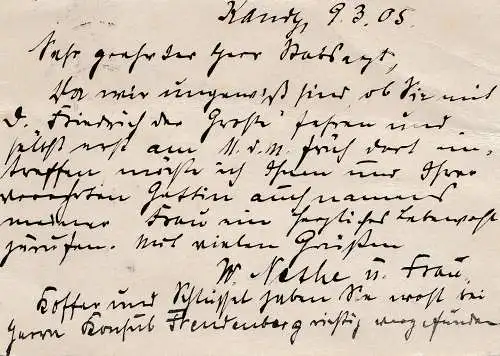 Kandy, 9.3.05.
Sehr geehrter Herr Stabsarzt,
Da wir ungewiß sind, ob Sie mit
D. "Friedrich der Große" fahren und
selbst erst am früh dort ein-
treffen möchte ich Ihnen und Ihrer
verehrten Gattin auch namens
meiner Frau ein herzliches Lebewohl
zurufen. Mit vielen Grüßen
W. Nethe u. Frau.
Koffer und Schlüssel haben Sie wohl bei
Herrn Konsul Freudenberg richtig vorgefunden